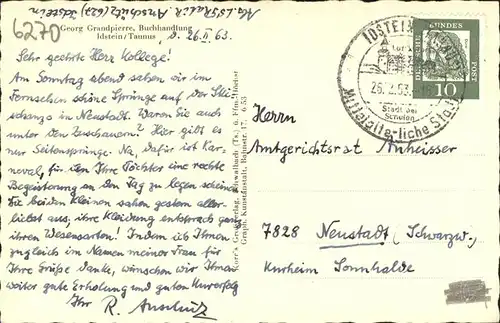 6270
Georg Grandpierre, Buchhandlung
Idstein/Taunus
d. 26.II.63.
Sehr geehrter Herr Kollege!
Am Sonntag abend sahen wir im
Fernsehen schöne Sprünge auf der Ski-
schanze in Neustadt. Waren Sie auch
unter den Zuschauern? Hier gibt es
nur Seitensprünge. Na, dafür ist Kar-
neval, für den Ihre Töchter eine rechte
Begeisterung an den Tag zu legen scheinen
Die beiden Kleinen sahen gestern aller-
liebst aus, ihre Kleidung entsprach ganz
ihren Wesensarten! Indem ich Ihnen
zugleich im Namen meiner Frau für
Ihre Grüße danke, wünschen wir Ihnen
weiter gute Erholung und guten Kurerfolg
Ihr R. Anschütz
Graph. Kunstanstalt, Bahnstr. 17, 6.53
IDSTEIN
26.2.63
Stadt der
Schulen
Mittelalterliche Stadt
DEUTSCHE
BUNDES
POST
10
Herrn
Amtgerichtsrat Anheisser
7828 Neustadt (Schwarzw.)
Kurheim Sonnhalde